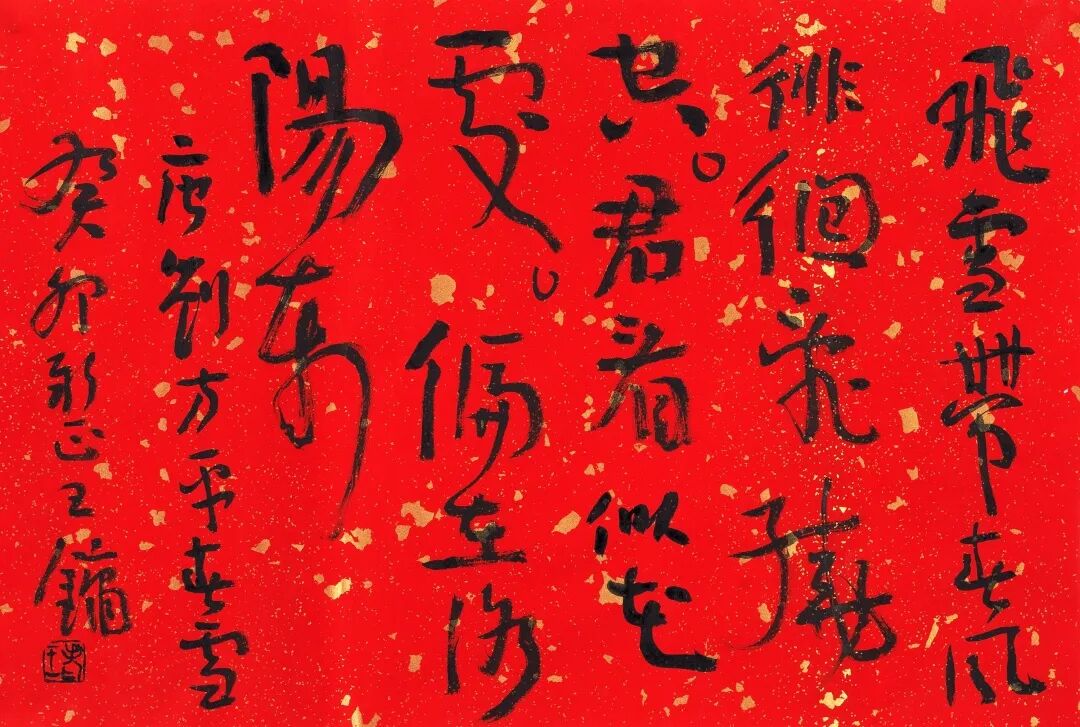 飛雪帶春風
徘徊亂繞
空。君看似花
處。偏在洛
陽東
唐劉方平春雪
癸卯新正王鏞